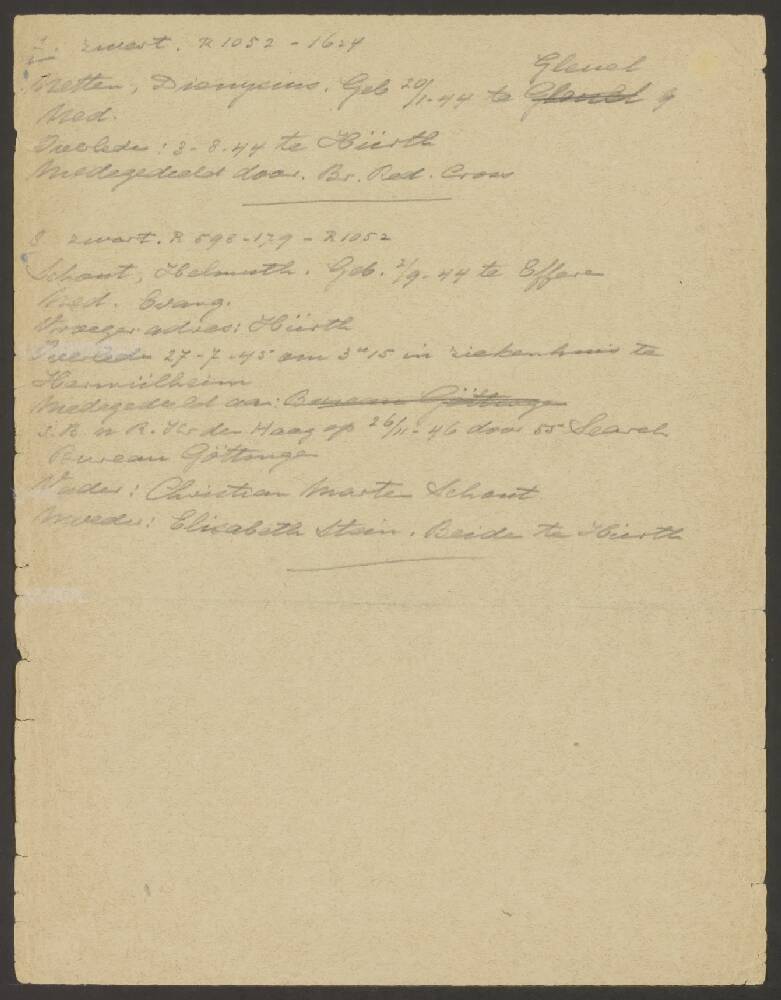 zwart. R 1052 - 1624
Gleuel
Netten, Dionysius. Geb 20/1-44 te Gleuel
Ned.
Overleden: 3-8-44 te Hürth
Medegedeeld door. Br. Red. Cross
8 zwart. R 598-179 - R1052
Schout, Helmuth. Geb. 2/9-44 te Efferen
Ned. Evang.
Vroeger adres: Hürth
Overleden 27-7-45 om 3 15 in ziekenhuis te
Hermülheim
Medegedeeld aan: Bureau Göttingen
I.B. N. R. Kr den Haag op 26/11-46 door 55 Search
Bureau Göttingen
Vader: Christian Marten Schout
Moeder: Elisabeth Stein. Beide te Hürth